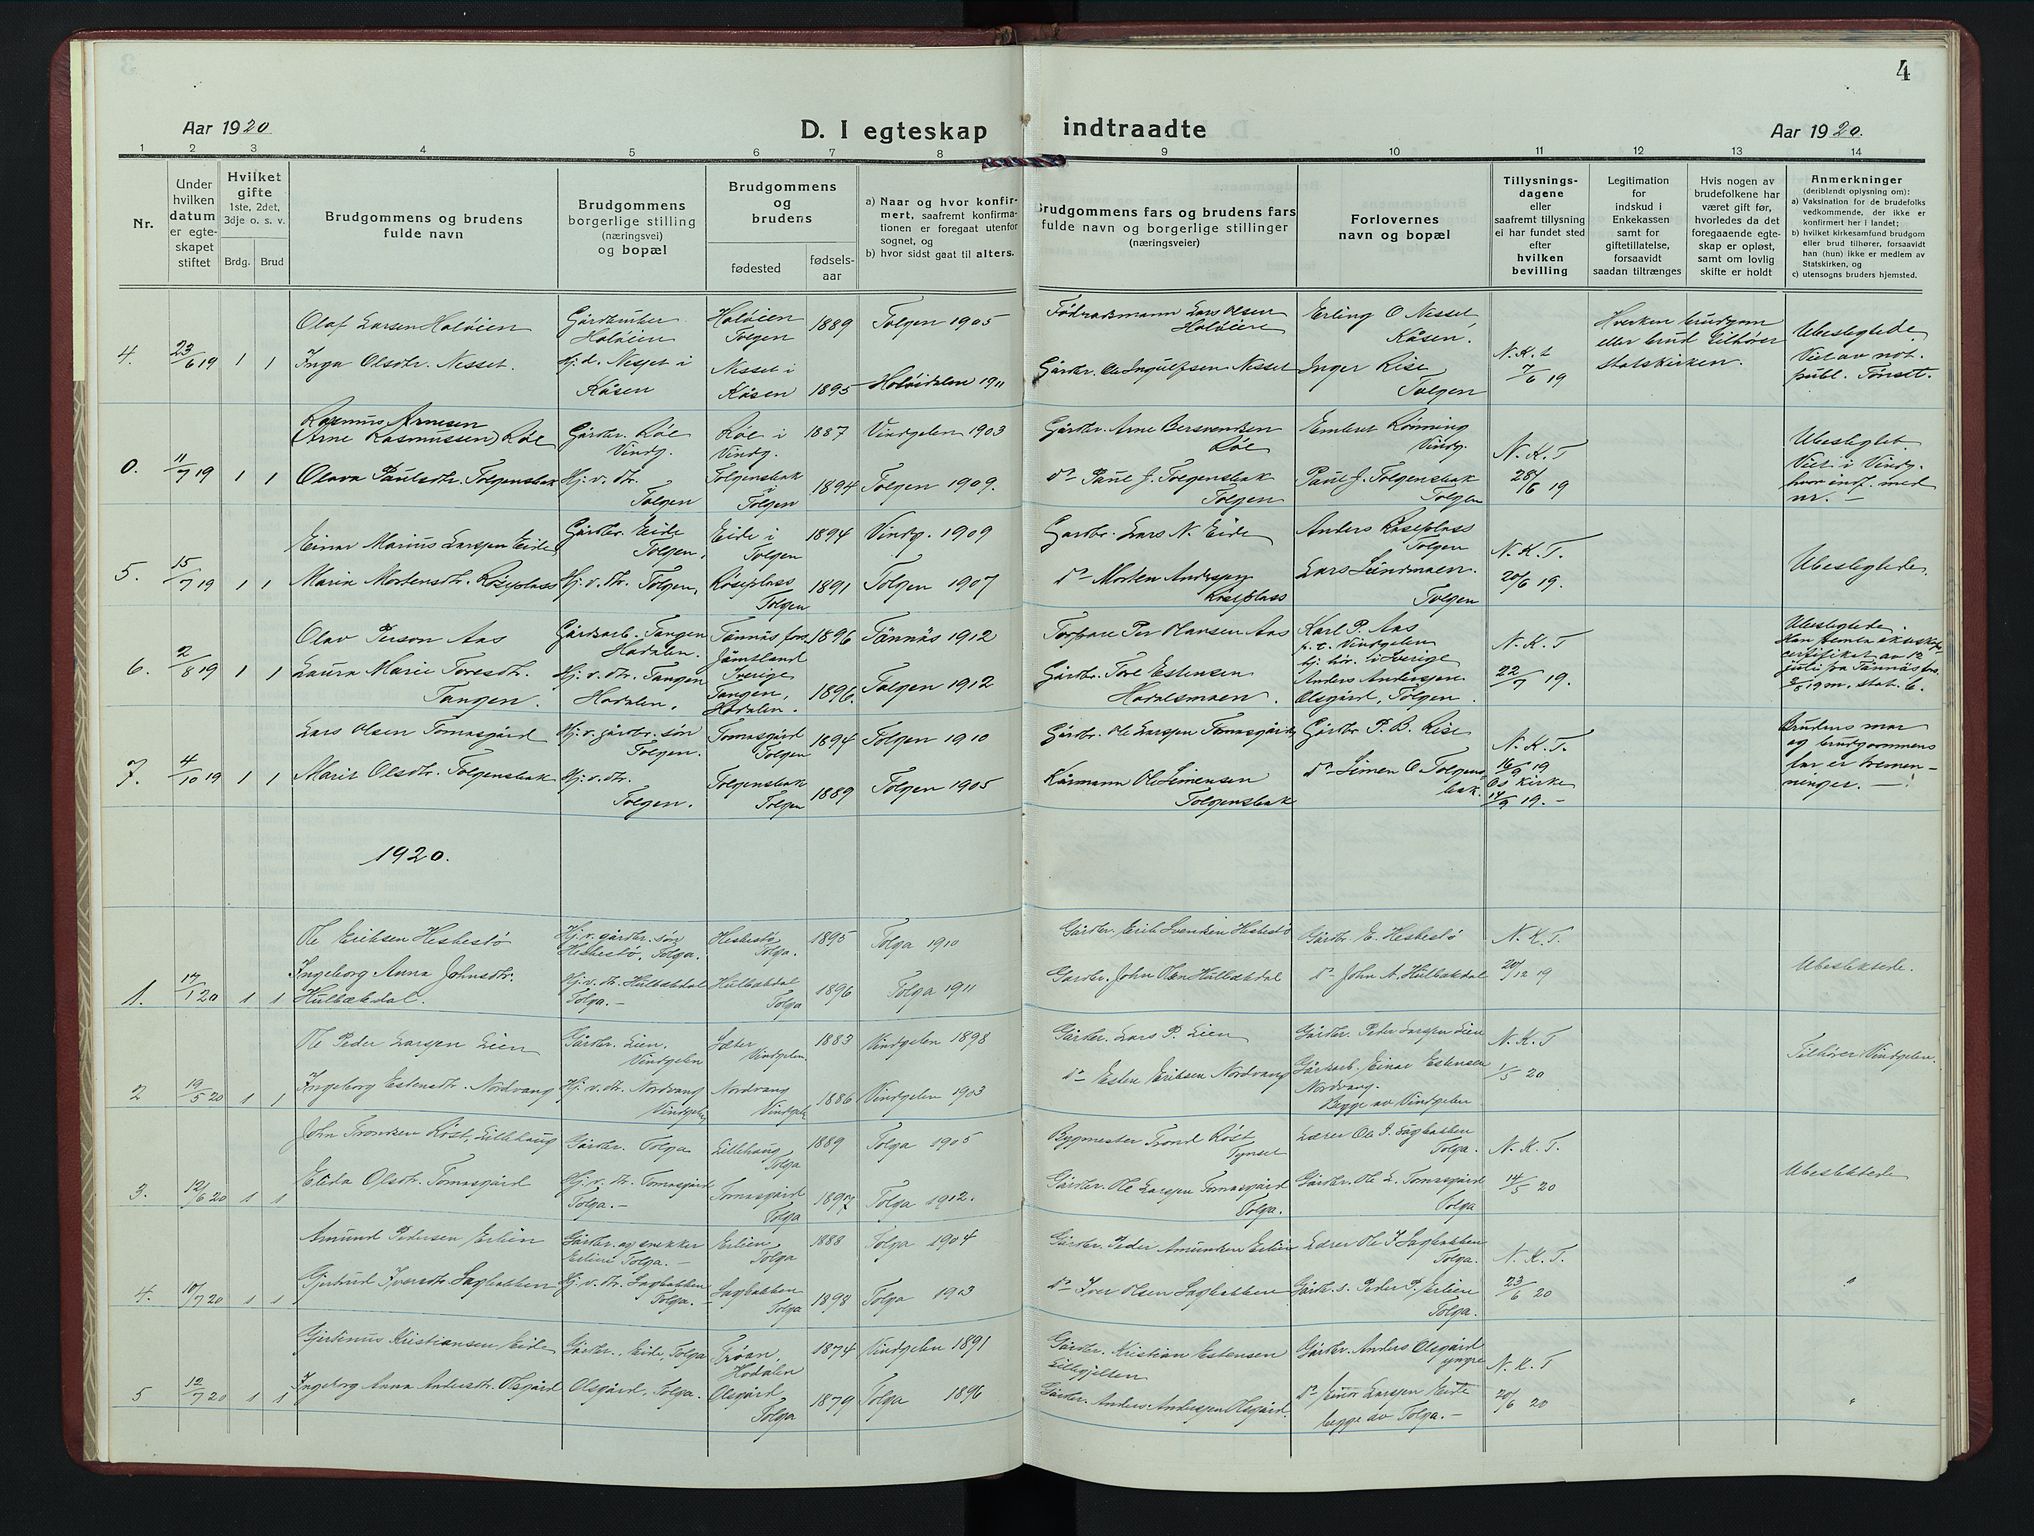 4
Aar 1920
D. I egteskap indtraadte
Aar 1920.
1 2 3 4 5 6 7 8 9 10 11 12 13 14
Nr.
Under
hvilken
datum
er egte-
skapet
stiftet
Hvilket
gifte
1ste, 2det,
3dje o. s. v.
Brdg. Brud
Brudgommens og brudens
fulde navn
Brudgommens
borgerlige stilling
(næringsvei)
og bopæl
Brudgommens
og
brudens
fødested
fødsels-
aar
a) Naar og hvor konfir-
mert, saafremt konfirma-
tionen er foregaat utenfor
sognet, og
b) hvor sidst gaat til alters.
Brudgommens fars og brudens fars
fulde navn og borgerlige stillinger
(næringsveier)
Forlovernes
navn og bopæl
Tillysnings-
dagene
eller
saafremt tillysning
ei har fundet sted
efter
hvilken
bevilling
Legitimation
for
indskud i
Enkekassen
samt for
giftetillatelse,
forsaavidt
saadan tiltrænges
Hvis nogen av
brudefolkene har
været gift før,
hvorledes da det
foregaaende egte-
skap er opløst,
samt om lovlig
skifte er holdt
Anmerkninger
(deriblandt oplysning om):
a) Vaksination for de brudefolks
vedkommende, der ikke er
konfirmert her i landet;
b) hvilket kirkesamfund brudgom
eller brud tilhører, forsaavidt
han (hun) ikke er medlem av
Statskirken, og
c) utensogns bruders hjemsted.
4. 23/6 19 1 1
Olaf Larsen Holøien
Inga Olsdtr. Nesset.
Gårdbruker
Holøien
Hj. d. Nesset i
Kåsen
Holøien
Tolgen
Nesset i
Kåsen
1889
1895
Tolgen 1905
Holøidalen 1911
Fødrådsmann Lars Olsen
Holøien
Gårdbr. Ole Ingulfsen Nesset
Erling O Nesset
Kåsen.
Inger Rise
Tolgen
N. K. t
7/6 19
Hverken brudgom
eller brud tilhører
statskirken.
Ubeslegtede.
Viet av not.
publ. Tønset.
0. 11/7 19 1 1
Rasmus Arnesen
(Arne Rasmussen) Røe
Olava Paulsdtr. Tolgensbak
Gårdbr. Røe
Vindg.
Hj. v. dtr.
Tolgen
Røe i
Vindg.
Tolgensbak
i
Tolgen
1887
1894
Vindgelen 1903
Tolgen 1909.
Gårdbr. Arne Bersvendsen
Røe
do Paul J. Tolgensbak
Tolgen
Embret Rønning
Vindg.
Paul J. Tolgensbak
Tolgen
N. K. T
28/6 19
Ubeslegtet
Viet i Vindg.
hvor indf. med
nr. —
5. 15/7 19 1 1
Einar Marius Larsen Eide
Marie Mortensdtr. Røseplass
Gårdbr. Eide
Tolgen.
Hj. v. dtr. Tolgen.
Eide i
Tolgen
Røseplass
Tolgen
1894
1891
Vindg. 1909
Tolgen 1907
Gårdbr. Lars N. Eide
do Morten Andersen
Røseplass
Anders Røseplass
Tolgen
Lars Sundmoen.
Tolgen
N. K. T.
20/6 19.
Ubeslegtede.
6. 2/8 19 1 1
Olav Person Aas
Laura Marie Toresdtr.
Tangen.
Gårdsarb. Tangen
Hodalen.
Hj. v. dtr. Tangen
Hodalen.
Tännäs fors.
Jämtland
Sverige
Tangen,
Hodalen.
1896
1896.
Tännäs 1912
Tolgen 1912
Torpare Per Olausen Aas
Gårdbr. Tore Estensen
Hodalsmoen.
Karl P. Aas
p. t. Vindgelen
hj. hör. i Sverige
Anders Anderssen
Olsgård, Tolgen.
N. K. T
22/7 19.
Ubeslegtede.
certifikat av 12
juli fra Tännäs fors.
7. 4/10 19 1 1
Lars Olsen Tomasgård
Marit Olsdtr. Tolgensbak
Hj. v. gårdbr. søn
Tolgen.
Hj. v. dtr.
Tolgen.
Tomasgård
Tolgen
Tolgensbak
Tolgen
1894
1889
Tolgen 1910
Tolgen 1905
Gårdbr. Ole Larssen Tomasgård
Kårmann Ole Simensen
Tolgensbak
Gårdbr P. B. Rise
do Simen O Tolgens-
bak.
N. K. T.
16/9 19
Os Kirke
14/9 19. —
Brudens mor
og brudgommens
far er tremen-
ninger. —
1920.
1. 17/1 20 1 1
Ole Eriksen Hesbestø
Ingeborg Anna Johnsdtr.
Hulbækdal.
Hj. v. gårdbr. søn
Hesbestø, Tolga.
Hj. v. dtr. Hulbækdal
Tolga. —
Hesbestø
Tolga.
Hulbækdal
Tolga
1895
1896
Tolga 1910
Tolga 1911
Gårdbr. Erik Svendsen Hesbestø
Gårdbr. John Olsen Hulbækdal
Gårdbr. E. Hesbestø
do John A. Hulbækdal
N. K. T.
20/12 19
Ubeslektede.
2 19/5 20 1 1
Ole Peder Larssen Lien
Ingeborg Estensdtr. Nordvang
Gårdbr. Lien.
Vindgelen
Hj. v. dtr. Nordvang
Vindgelen
Sæter
Vindgelen.
Nordvang
Vindgelen
1883
1886
Vindgelen 1898
Vindgelen 1903
Gårdbr. Lars P. Lien
do Esten Eriksen Nordvang
Gårdbr. Peder Larssen Lien
Gårdsarb. Einar Estensen
Nordvang.
Begge av Vindgelen
N. K. T
1/5 20
Tilhører Vindgelen.
3. 12/6 20 1 1
John Trondsen Røst, Lillehaug
Elida Olsdtr. Tomasgård
Gårdbr. Tolga
Hj. v. dtr. Tomasgård
Tolga. —
Lillehaug
Tolga
Tomasgård
Tolga
1889
1897
Tolga 1905
Tolga 1912.
Bygmester Trond Røst
Tynset
Gårdbr. Ole Larssen Tomasgård
Tolga.
Lærer Ole I. Sagbakken
Tolga.
Gårdbr. Ole L. Tomasgård
Tolga
N. K. T.
14/5 20
Ubeslektede
4. 10/7 20 1 1
Amund Pedersen Erlien
Gjertrud Iversdtr Sagbakken
Gårdbr. og snekker
Erlien Tolga. —
Hj. v. dtr. Sagbakken
Tolga. —
Erlien
Tolga
Sagbakken
Tolga
1888
1898
Tolga 1904
Tolga 1913
Gårdbr. Peder Amundsen Erlien
do Iver Olsen Sagbakken
Lærer Ole I Sagbakken
Tolga.
Gårdbr. s. Peder P. Erlien
Tolga.
N. K. T.
23/6 20
"
5 12/7 20 1 1
Gjertinus Kristiansen Eide
Ingeborg Anna Andersdtr. Olsgård
Gårdbr., Eide, Tolga
Olsgård, Tolga.
Trøan,
Hodalen
Olsgård
Tolga
1874
1879
Vindgelen 1891
Tolga 1896
Gårdbr. Kristian Estensen
Lillegjelten
Gårdbr. Anders Anderssen Olsgård.
Gårdbr. Anders Olsgård
yngre
do Einar Larssen Eide
begge av Tolga. —
N. K. T
20/6 20
"